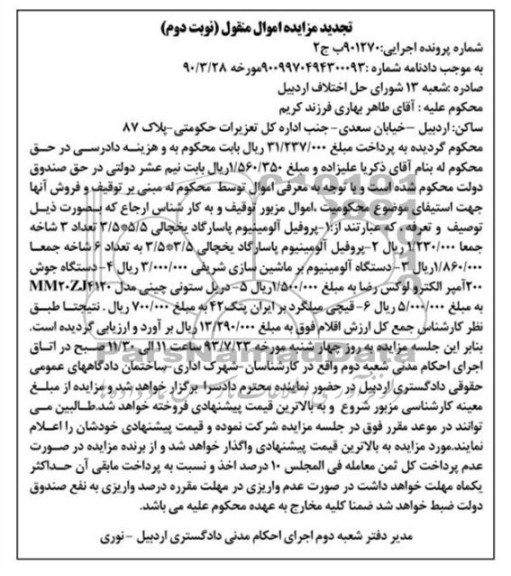 تجدید مزایده اموال منقول (نوبت دوم)
شماره پرونده اجرایی:۹۰۱۲۷۰ب ج۲
به موجب دادنامه شماره :۹۰۰۹۹۷۰۴۹۴۳۰۰۰۹۳مورخه ۹۰/۳/۲۸
صادره :شعبه ۱۳ شورای حل اختلاف اردبیل
محکوم علیه : آقای طاهر بهاری فرزند کریم
ساکن: اردبیل –خیابان سعدی- جنب اداره کل تعزیرات حکومتی-پلاک ۸۷
محکوم گردیده به پرداخت مبلغ ۳۱/۲۳۷/۰۰۰ ریال بابت محکوم به و هزینه دادرسی در حق
محکوم له بنام آقای ذکریا علیزاده و مبلغ ۱/۵۶۰/۳۵۰ریال بابت نیم عشر دولتی در حق صندوق
دولت محکوم شده است و با توجه به معرفی اموال توسط محکوم له مبنی بر توقیف و فروش آنها
جهت استیفای موضوع محکومیت ،اموال مزبور توقیف و به کار شناس ارجاع که بـصورت ذیـل
توصیف و تعرفه ،که عبارتند از:۱-پروفیل آلومینیوم پاسارگاد یخچالی ۵/۵*۳/۵ تعداد ۳ شاخه
جمعا ۱/۲۳۰/۰۰۰ ریال ۲-پروفیل آلومینیوم پاسارگاد یخچالی ۳/۵*۳/۵ به تعداد ۶ شاخه جمعـا
۱/۸۶۰/۰۰۰ریال ۳- دستگاه آلومینیوم بر ماشین سازی شریفی ۳/۰۰۰/۰۰۰ ریال ۴-دستگاه جوش
۲۰۰آمپر الکترو لوکس رضا به مبلغ ۱/۵۰۰/۰۰۰ریال ۵-دریل ستونی چینی مدل MM۲۰ZJ۴۱۲۰
به مبلغ ۵/۰۰۰/۰۰۰ ریال ۶-قیچی میلگرد بر ایران پتک۴۲به مبلغ ۷۰۰/۰۰۰ ریال . نتیجتـا طبـق
نظر کارشناس جمع کل ارزش اقلام فوق به مبلغ ۱۳/۲۹۰/۰۰۰ ریال بر آورد و ارزیابی گردیده است.
بنابر این جلسه مزایده به روز چهارشنبه مورخه ۹۳/۷/۲۳ ساعت ۱۱ الی ۱۱/۳۰ صـبح در اتـاق
اجرای احکام مدنی شعبه دوم واقع در کارشناسان -شهرک اداری-ساختمان دادگاههای عمومی
حقوقی دادگستری اردبیل در حضور نماینده محترم دادسرا برگزار خواهد شد و مزایده از مبلـغ
معینه کارشناسی مزبور شروع و به بالاترین قیمت پیشنهادی فروخته خواهد شد.طـالبین مـی
توانند در موعد مقرر فوق در جلسه مزایده شرکت نموده و قیمت پیشنهادی خودشان را اعـلام
نمایند.مورد مزایده به بالاترین قیمت پیشنهادی واگذار خواهد شد و از برنده مزایده در صـورت
عدم پرداخت کل ثمن معامله فی المجلس ۱۰ درصد اخذ و نسبت به پرداخت مابقی آن حـداکثر
یکماه مهلت خواهد داشت در صورت عدم واریزی در مهلت مقرره درصد واریزی به نفع صندوق
دولت ضبط خواهد شد ضمنا کلیه مخارج به عهده محکوم علیه می باشد.
مدیر دفتر شعبه دوم اجرای احکام مدنی دادگستری اردبیل -نوری
ParsNamadData